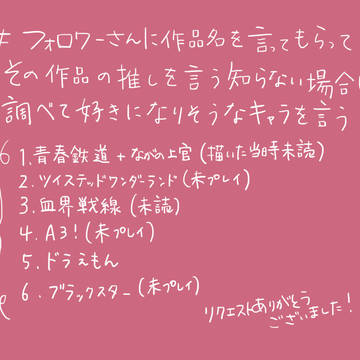 # フォロワーさんに作品名を言ってもらって
その作品の推しを言う知らない場合
調べて好きになりそうなキャラを言う
1.青春鉄道+ながの上官(描いた当時未読)
2.ツイステッドワンダーランド(未プレイ)
3.血界戦線(未読)
4.A3!(未プレイ)
5.ドラえもん
6.ブラックスター(未プレイ)
リクエストありがとう
ございました!